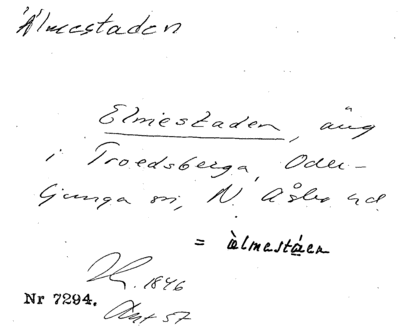 Älmestaden
Elmestaden, äng
i Troedsberga, Oder-
ljunga sn, N. Åsbo hd.
= älmestáen
1846
Nr 7294.
57